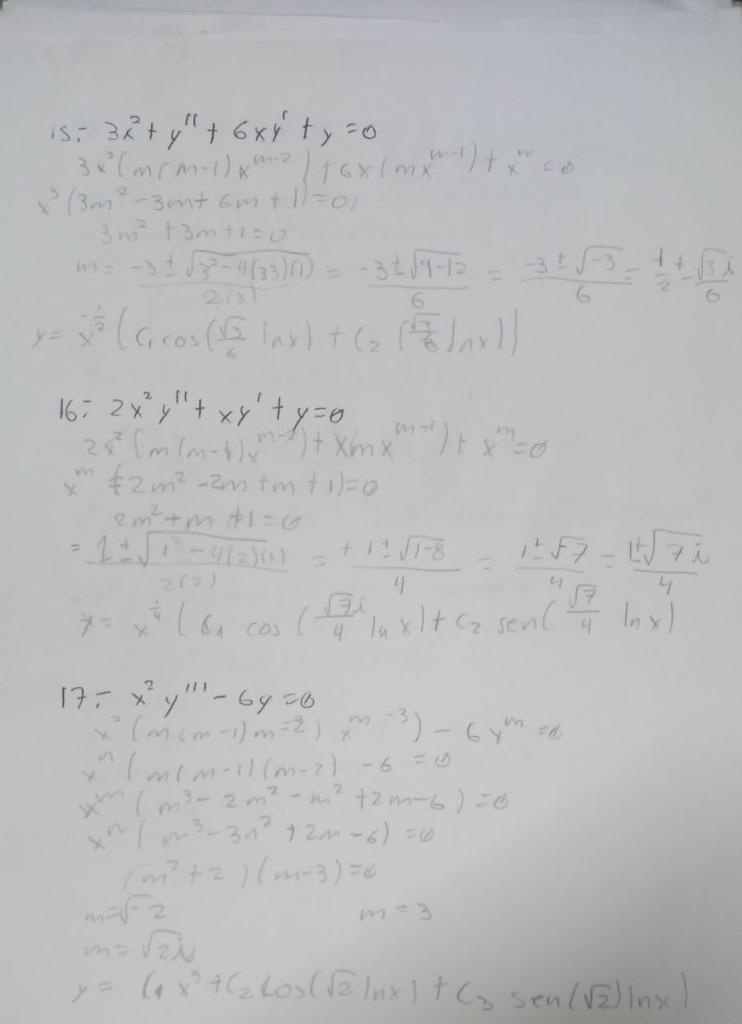 15.- 3x² + y'' + 6xy' + y = 0
3x²(m(m-1)x^{m-2}) + 6x(mx^{m-1}) + x^m = 0
x^3(3m² - 3m + 6m + 1) = 0
3m² + 3m + 1 = 0
m = \frac{-3 ± √(3² - 4(33)(1))}{2(3)} = \frac{-3 ± √(9-12)}{6} = \frac{-3 ± √-3}{6} = \frac{1}{2} ± \frac{√3 i}{6}
y = x^{-\frac{1}{2}} (C₁ cos(\frac{√3}{6} ln x) + C₂ (\frac{√3}{6} ln x))
16.- 2x² y'' + xy' + y = 0
2x²(m(m-1)x^{m-2}) + x(mx^{m-1}) + x^m = 0
x^m (2m² - 2m + m + 1) = 0
2m² + m + 1 = 0
= \frac{1 ± √(1² - 4(2)(1))}{2(2)} = \frac{+1 ± √(1-8)}{4} = \frac{1 ± √-7}{4} = \frac{1 ± √7 i}{4}
y = x^{\frac{1}{4}} (C₁ cos(\frac{√7 i}{4} ln x) + C₂ sen(\frac{√7}{4} ln x)
17.- x² y''' - 6y = 0
x²(m(m-1)m=2) x^{m-3}) - 6x^m = 0
x^n (m(m-1)(m-2) - 6 = 0
x^m (m³ - 2m² - m² + 2m - 6) = 0
x^n (m³ - 3n² + 2m - 6) = 0
(m² + 2)(m-3) = 0
m = √-2 m = 3
m = √2 i
y = C₁ x³ + C₂ cos(√2 ln x) + C₃ sen(√2) ln x)